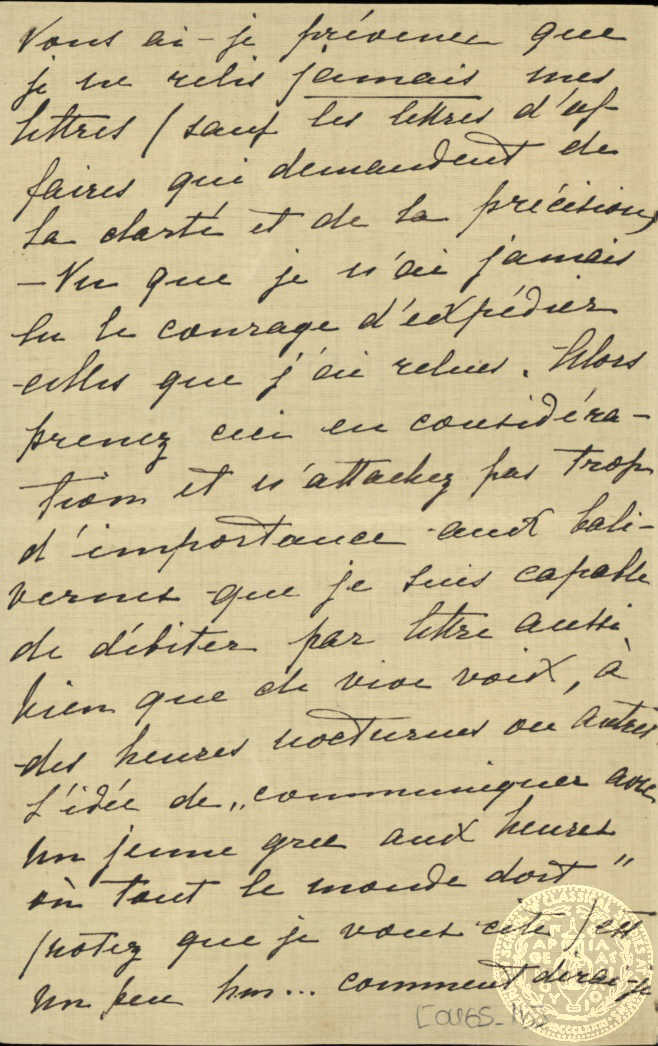 Vous ai-je prévenu que
je ne relis jamais mes
lettres (sauf les lettres d'af-
faires qui demandent de
la clarté et de la précision)
– Vu que je n'ai jamais
eu le courage d'expédier
celles que j'ai relues. Alors
prenez ceci en considéra-
tion et n'attachez pas trop
d'importance aux bali-
vernes que je suis capable
de débiter par lettre aussi
bien que de vive voix, à
des heures nocturnes ou autres.
L'idée de „communiquer avec
un jeune grec aux heures
où tout le monde dort"
(notez que je vous cite) est
un peu hm... comment dirai-je